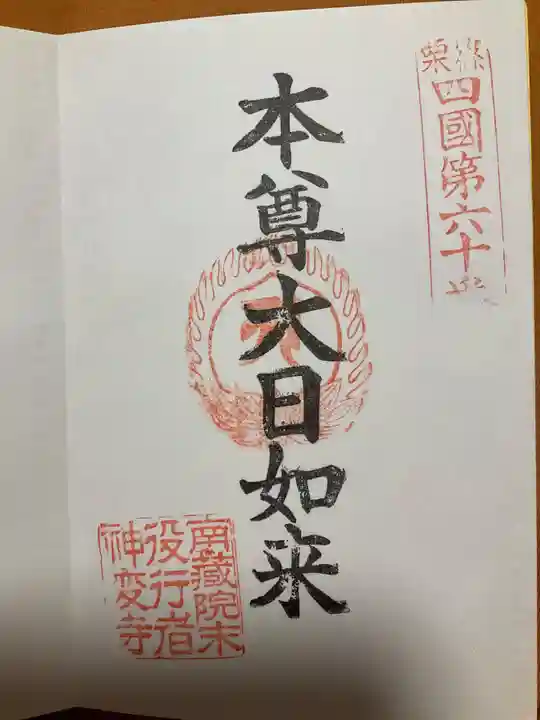 篠栗
四國第六十
本尊大日如来
南蔵院末
役行者
神変寺